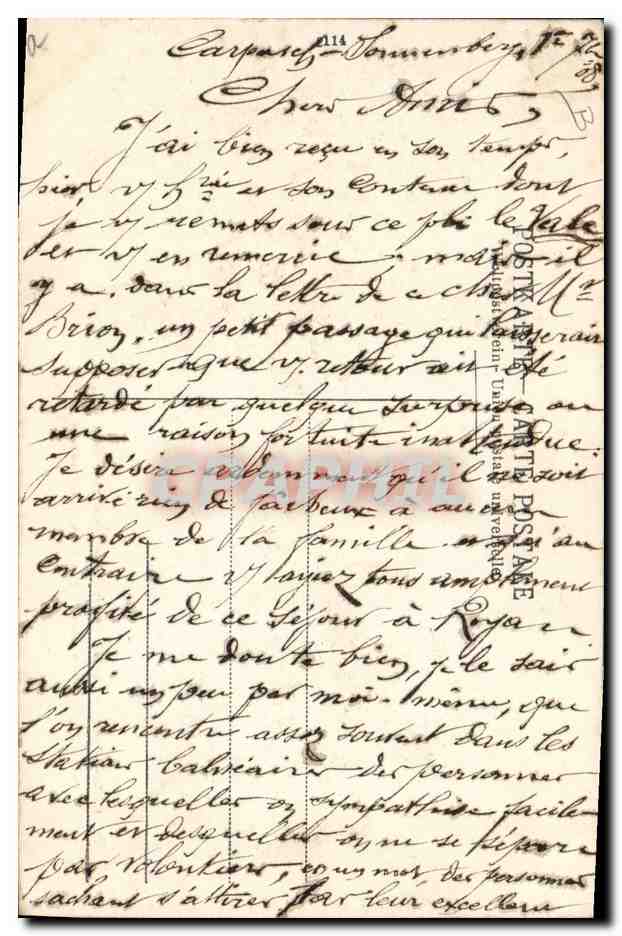 114
Chers Amis,
J'ai bien reçu en son temps,
hier et son contenu dont
je remets sous ce pli le Vale
et en remercie ; mais il
y a, dans la lettre de ce cher Mr
Brion, un petit passage qui laisserait
supposer que v/ retour ait été
retardé par quelque surprise ou
une raison fortuite inattendue.
Je désire ardemment qu'il ne soit
arrivé rien de fâcheux à aucun
membre de la famille et qu'au
contraire v/ ayez tous amplement
profité de ce séjour à Royan
Je me doute bien, je le sais
aussi un peu par moi-même, que
l'on rencontre assez souvent dans les
stations balnéaires des personnes
avec lesquelles on sympathise facile-
ment et desquelles on ne se sépare
pas volontiers, en un mot des personnes
sachant s'attirer par leur excellent
POSTKARTE - CARTE POSTALE
Weltpostverein - Union postale universelle
CPAPHIL
B